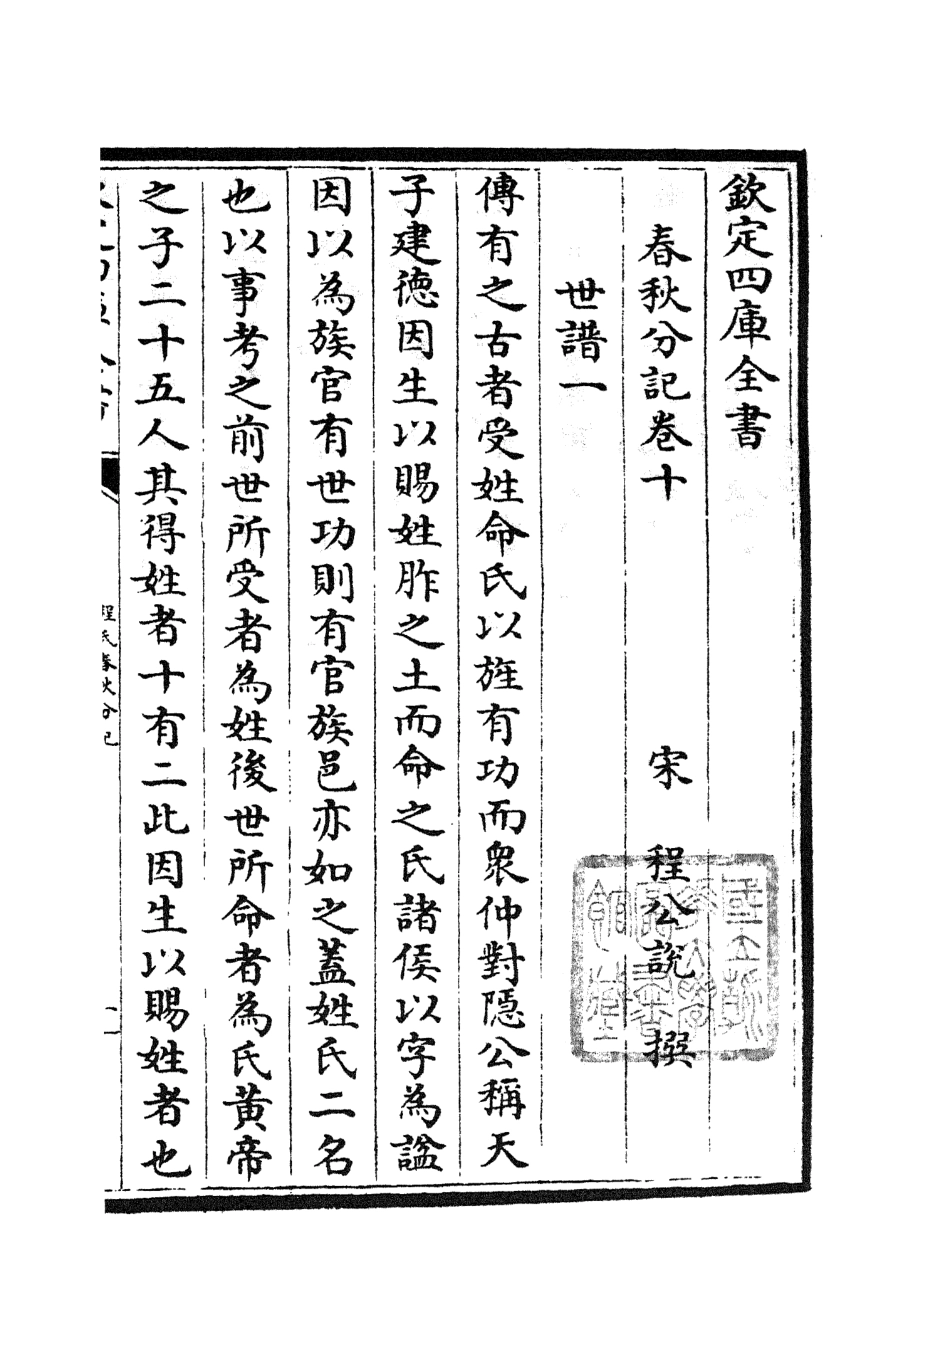 欽定四庫全書
春秋分記卷十
宋 程公說 撰
世譜一
傳有之古者受姓命氏以旌有功而衆仲對隱公稱天
子建德因生以賜姓胙之土而命之氏諸侯以字為諡
因以為族官有世功則有官族邑亦如之蓋姓氏二名
也以事考之前世所受者為姓後世所命者為氏黃帝
之子二十五人其得姓者十有二此因生以賜姓者也
程氏春秋分記